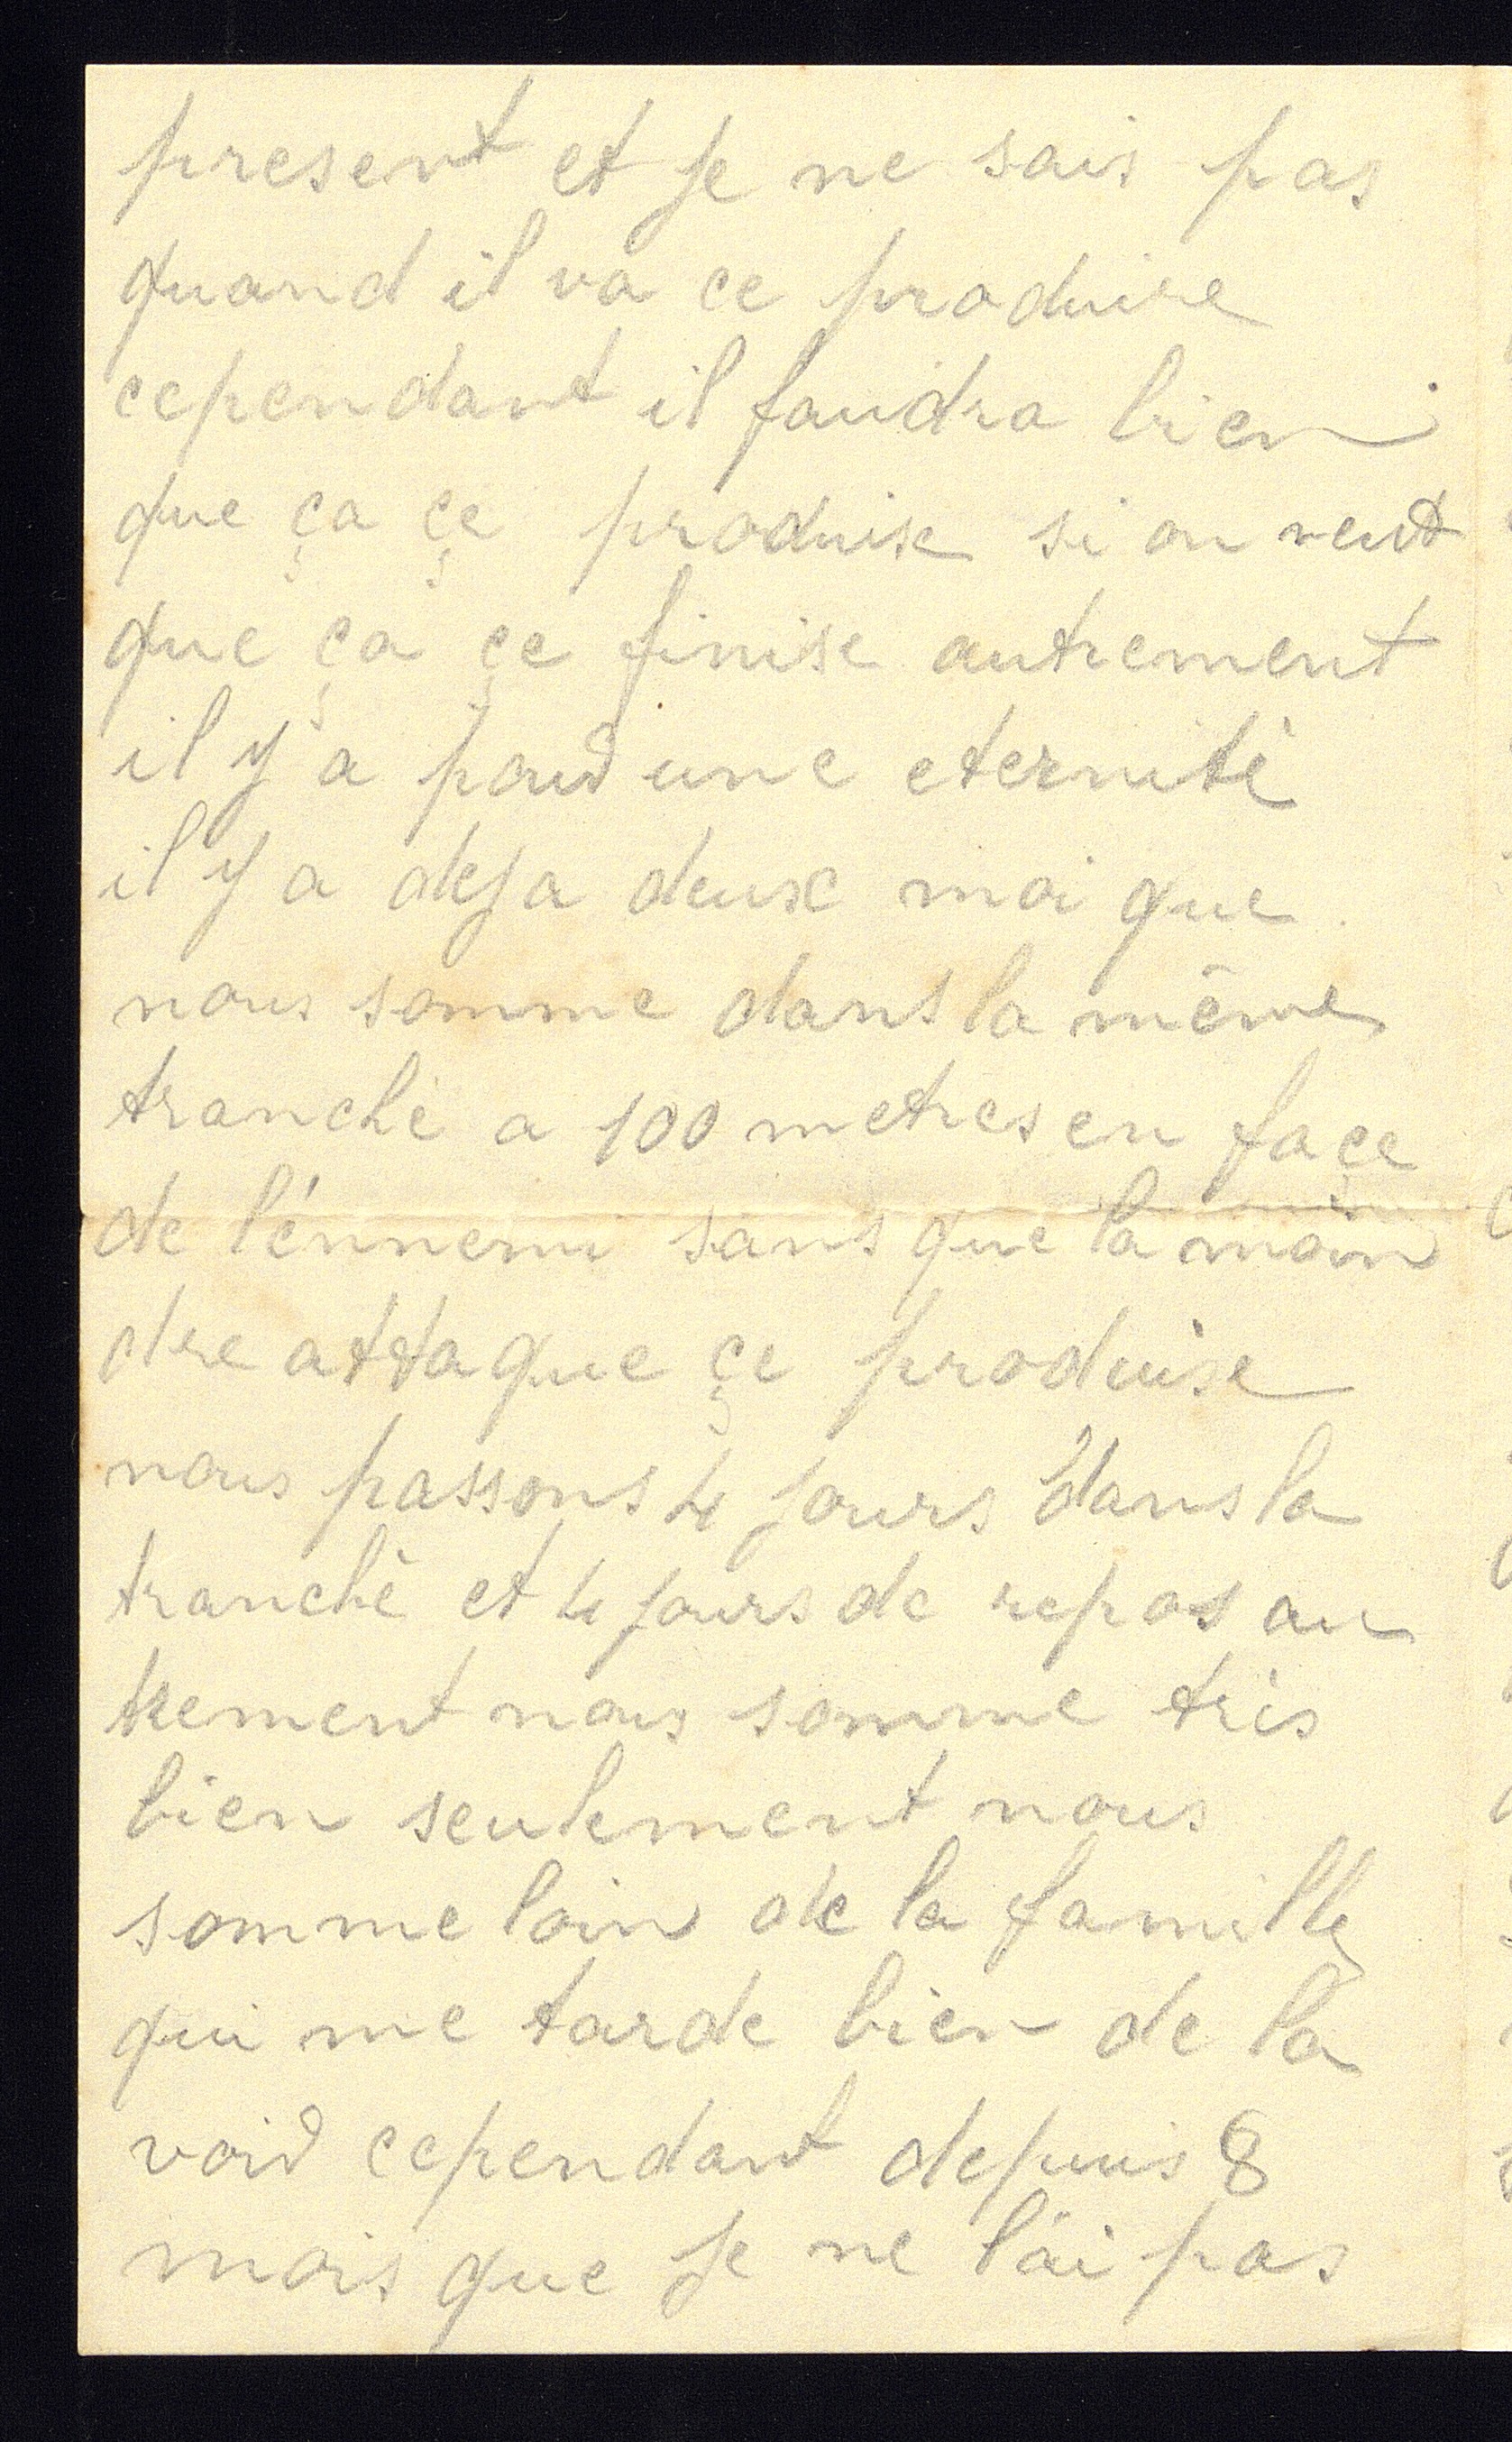 present et je ne sais pas
quand il va ce produire
cependant il faudra bien
que ça çe produise si on veut
que ça çe finise autrement
il y a pour une eternité
il y a deja deux moi que
nous somme dans la même
tranché a 100 metres en façe
de l'énnemi sans que la moin
dre attaque çe produise
nous passons 4 jours dans la
tranché et 4 jours de repos au
trement nous somme très
bien seulement nous
somme loin de la famille
qui me tarde bien de la
voir cependant depuis 8
mois que je ne l'ai pas